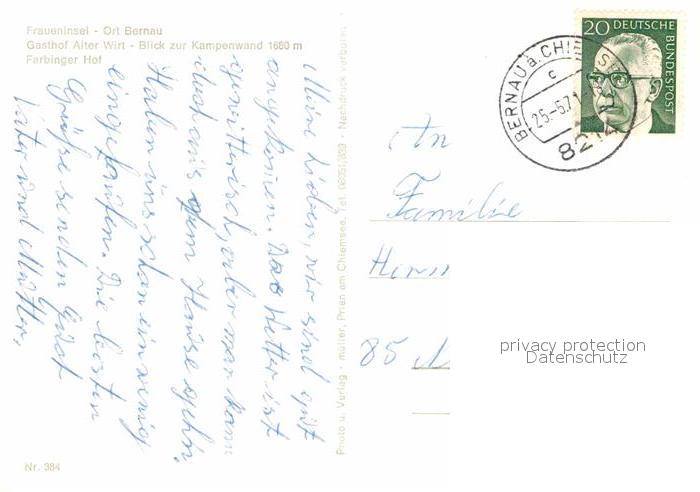 Fraueninsel - Ort Bernau
Gasthof Alter Wirt - Blick zur Kampenwand 1660 m
Farbinger Hof
Meine Lieben, wir sind gut
angekommen. Das Wetter ist
gewitterisch, aber man kann
doch aus dem Hause gehn.
Haben uns schon ein wenig
eingelaufen. Die besten
Grüße senden Euch
Vater und Mutter.
Nr. 384
Photo u. Verlag - müller, Prien am Chiemsee, Tel. 08051/339 - Nachdruck verboten
20 DEUTSCHE
BUNDESPOST
BERNAU a. CHIEMSEE
c
25.-5.71
821
An
Familie
Herrn
85 N
privacy protection
Datenschutz